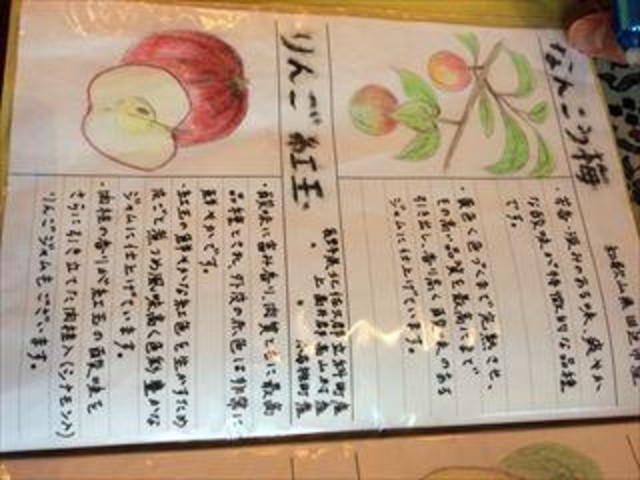 なんこう梅
和歌山県田辺市産
・芳香・渋みのある味、爽やか
な酸味が特徴的な品種
です。
・黄色く色づくまで完熟させ、
もの高い品質を最高にまで
引き出し、香り高く酸味のある
ジャムに仕上げています。
りんご紅玉
長野県北佐久郡立科町産
・酸味に富み香り、肉質ともに最高
品種とされ、外皮の赤色は非常に
鮮やかです。
・紅玉の鮮やかな紅色を生かすため
皮ごと煮つめ風味高く色彩豊かな
ジャムに仕上げています。
・肉桂の香りが紅玉の酸味を
さらに引き立てた肉桂入(シナモン入)
りんごジャムもございます。